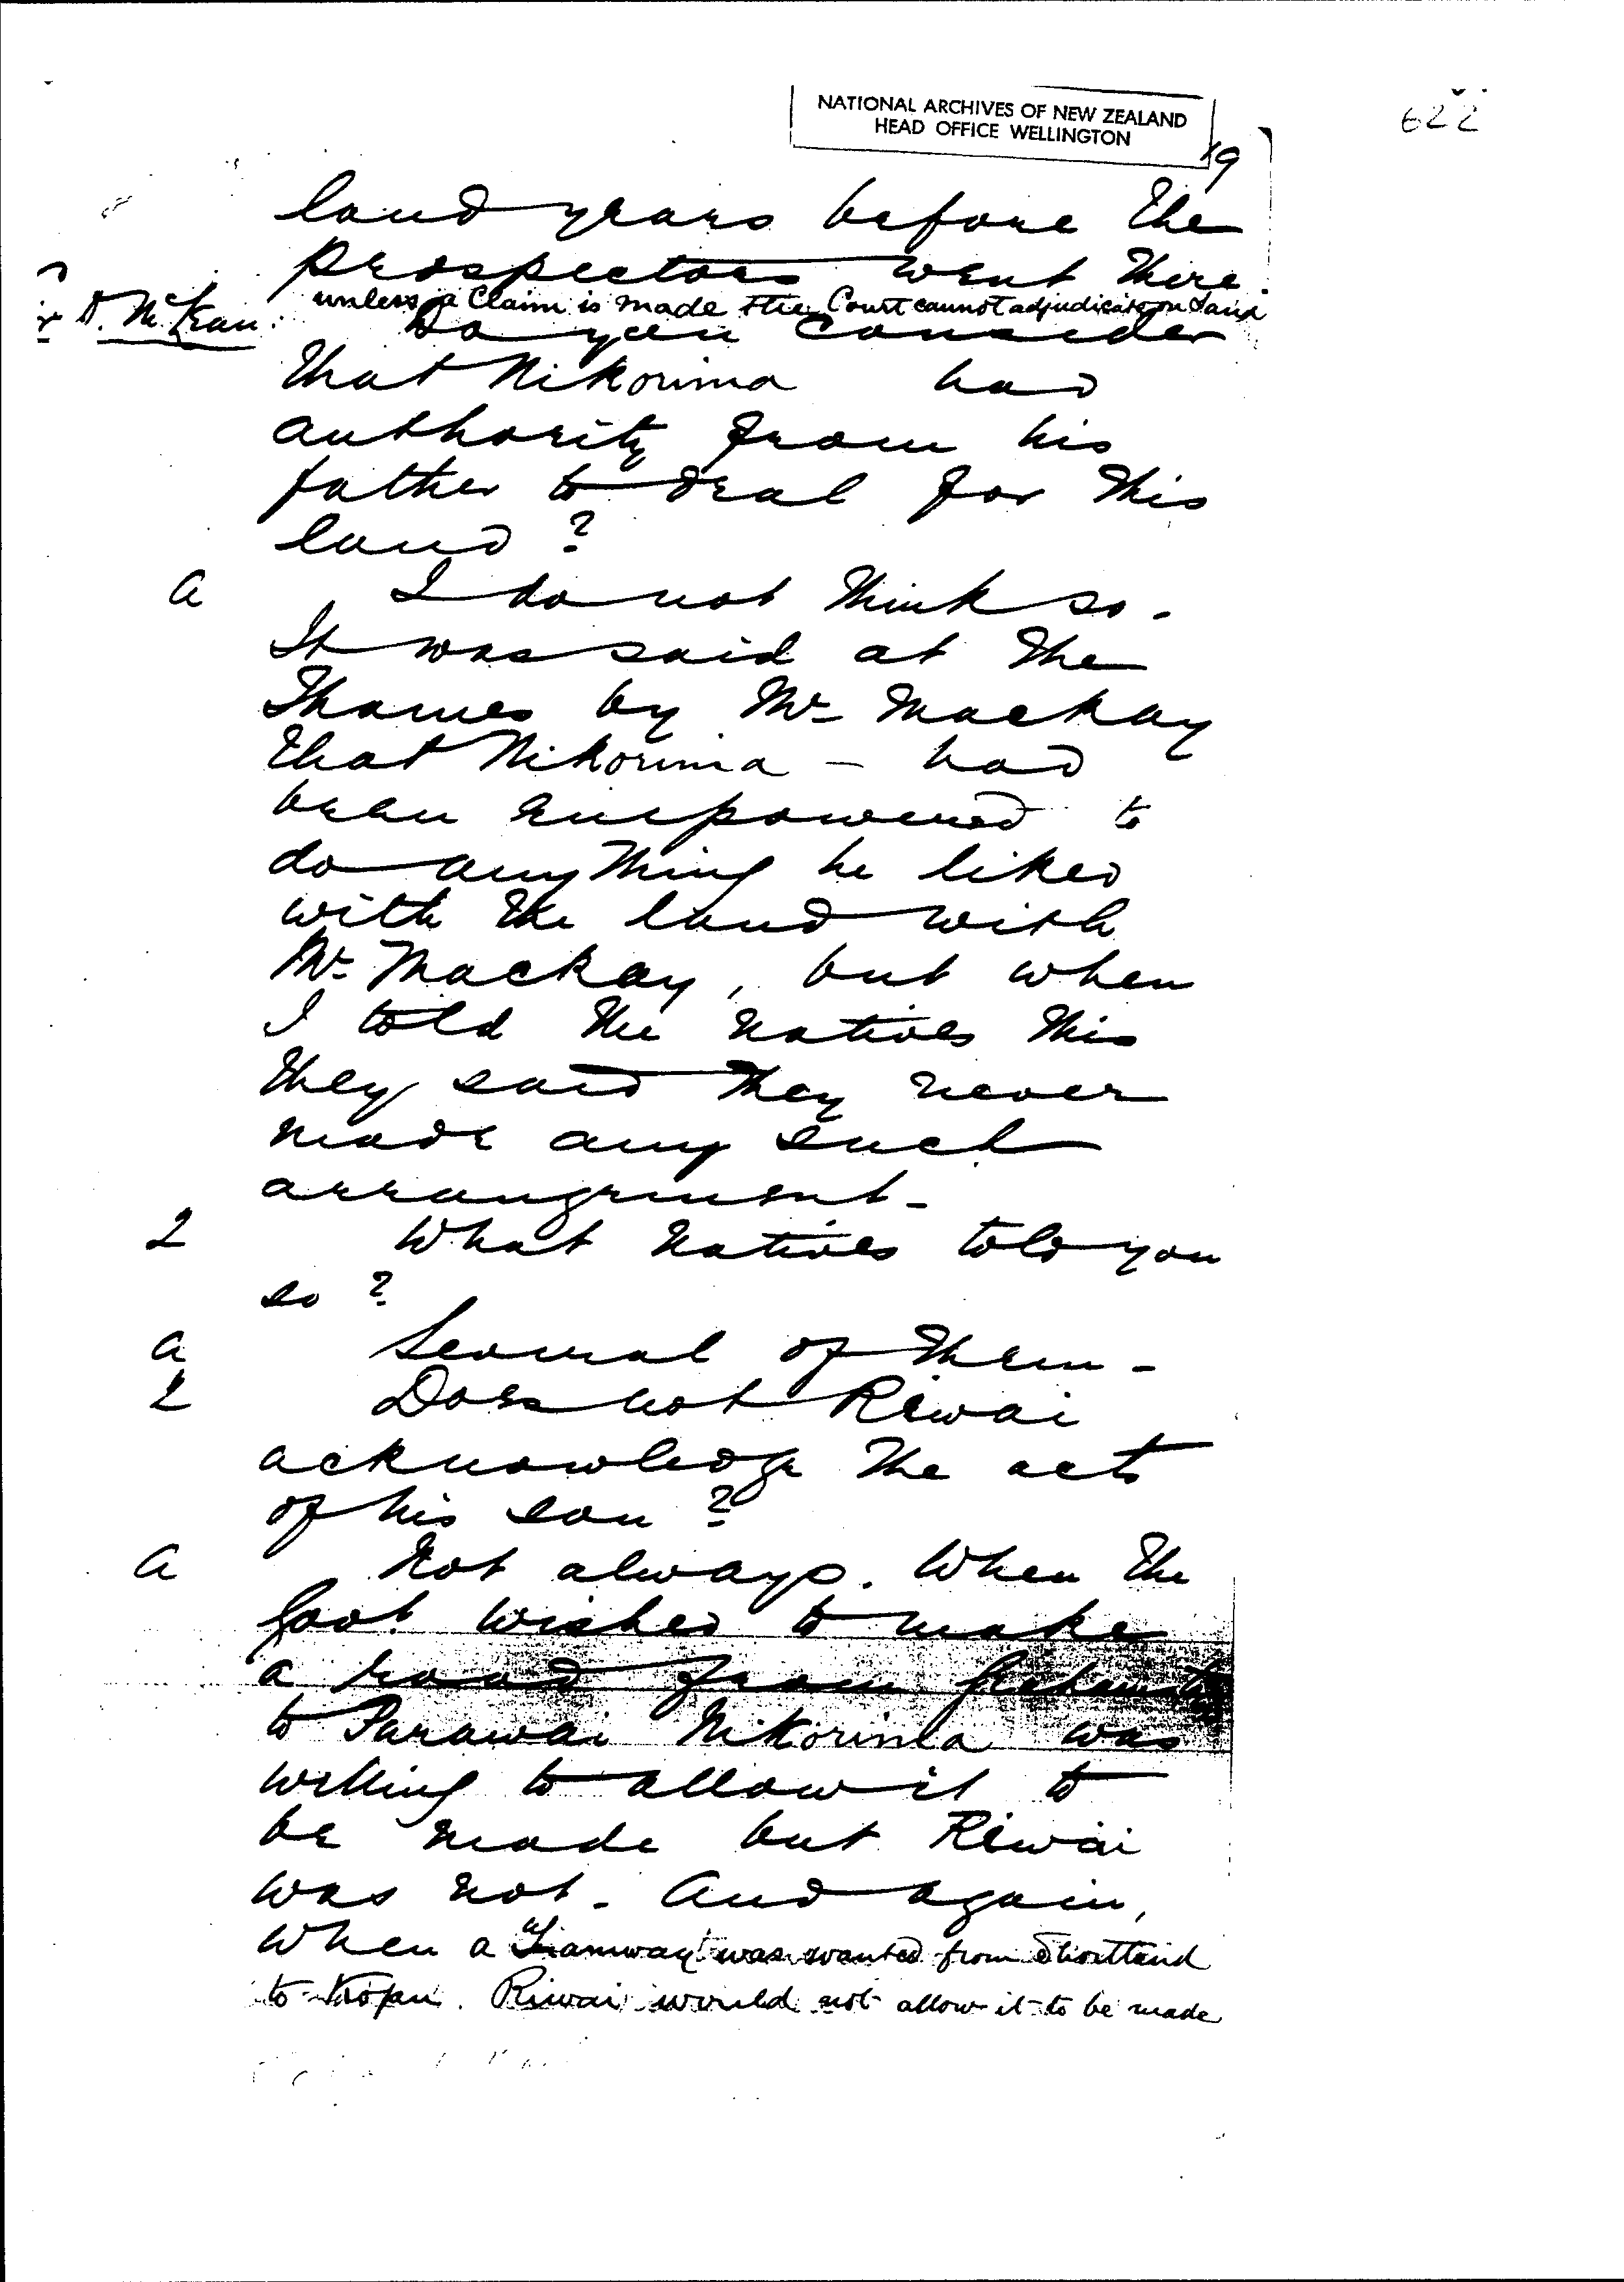 NATIONAL ARCHIVES OF NEW ZEALAND
HEAD OFFICE WELLINGTON
622
19
land years before the
prospectors went there.
unless a Claim is made the Court cannot adjudicate on Land
D. McLean: Do you consider
that Nikorima had
authority from his
father to deal for this
land?
a I do not think so -
It was said at the
Thames by Mr Mackay
that Nikorima - had
been empowered to
do anything he liked
with the land with
Mr. Mackay, but when
I told the natives this
they said they never
made any such
arrangement -
Q What natives told you
so?
a Several of them -
Q Does not Riwai
acknowledge the acts
of his son?
a Not always. When the
Govt wished to make
a road from
to Parawai Nikorima was
willing to allow it to
be made but Riwai
was not. And again,
when a Tramway was wanted from Shortland
to Kopu. Riwai would not allow it to be made